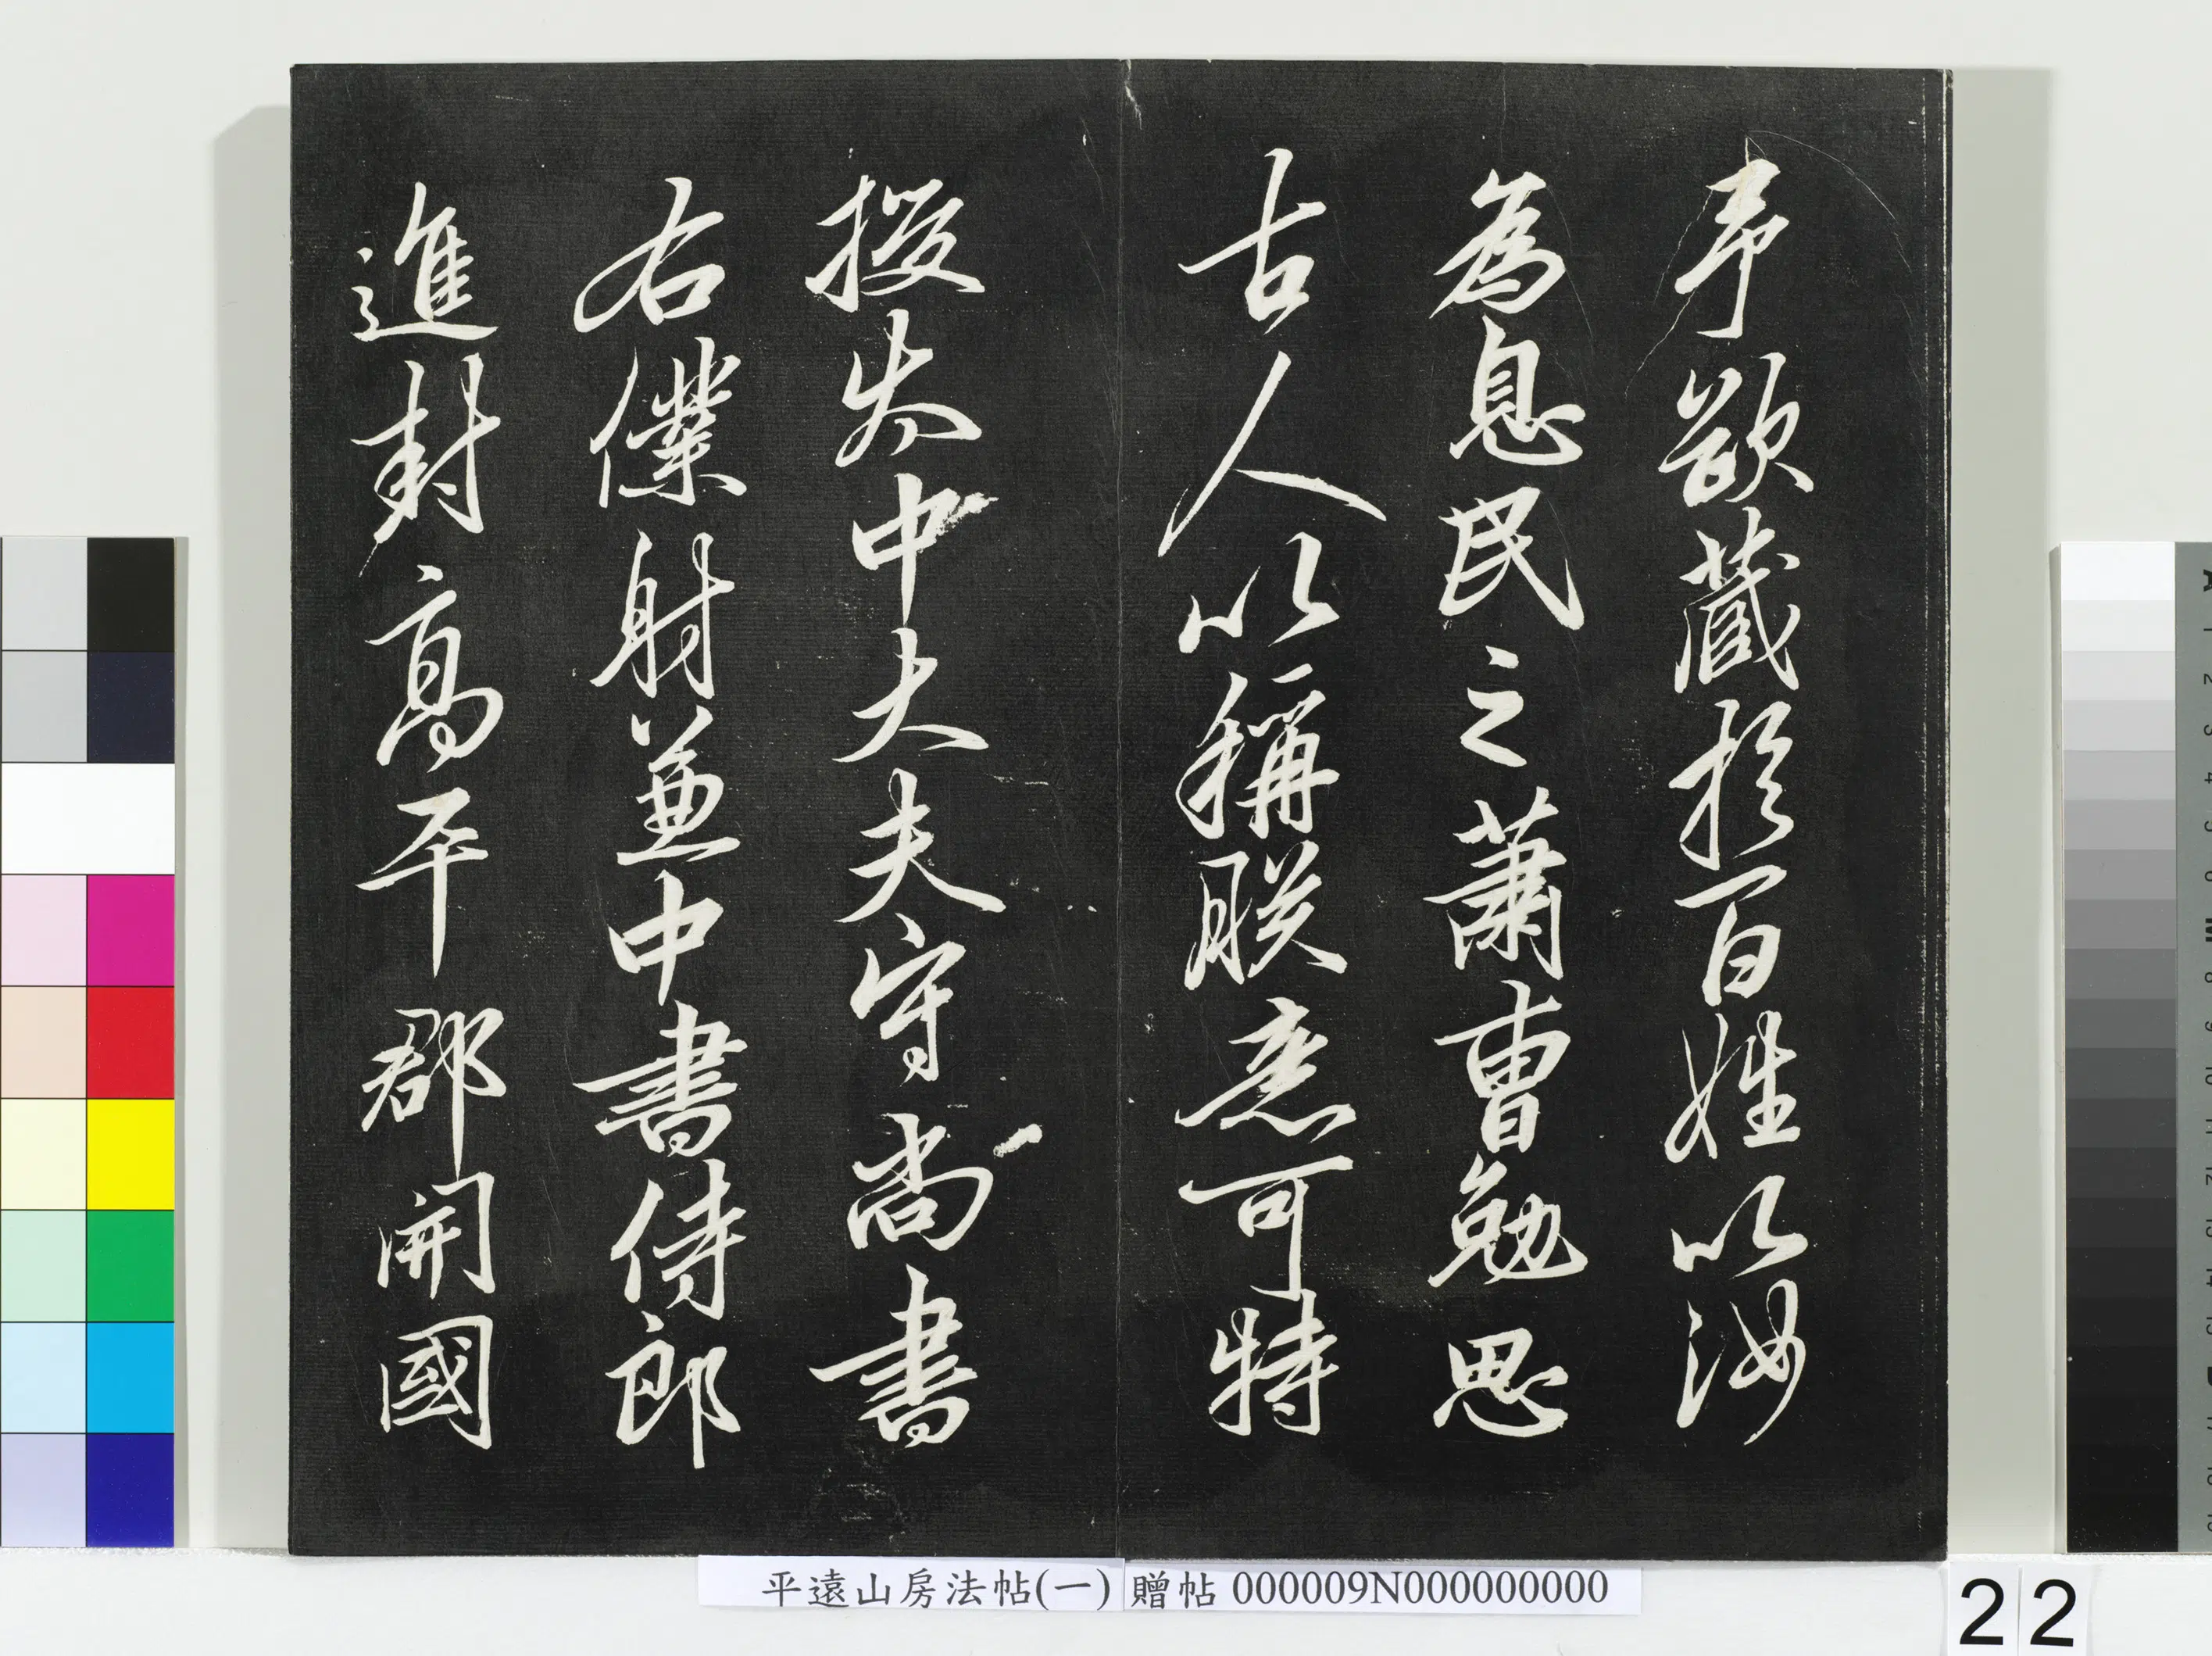 欲藏於百姓以汝
為息民之蕭曹勉思
古人以稱朕意可特
授太中大夫守尚書
右僕射兼中書侍郎
進封高平郡開國
平遠山房法帖(一) 贈帖 000009N000000000
22